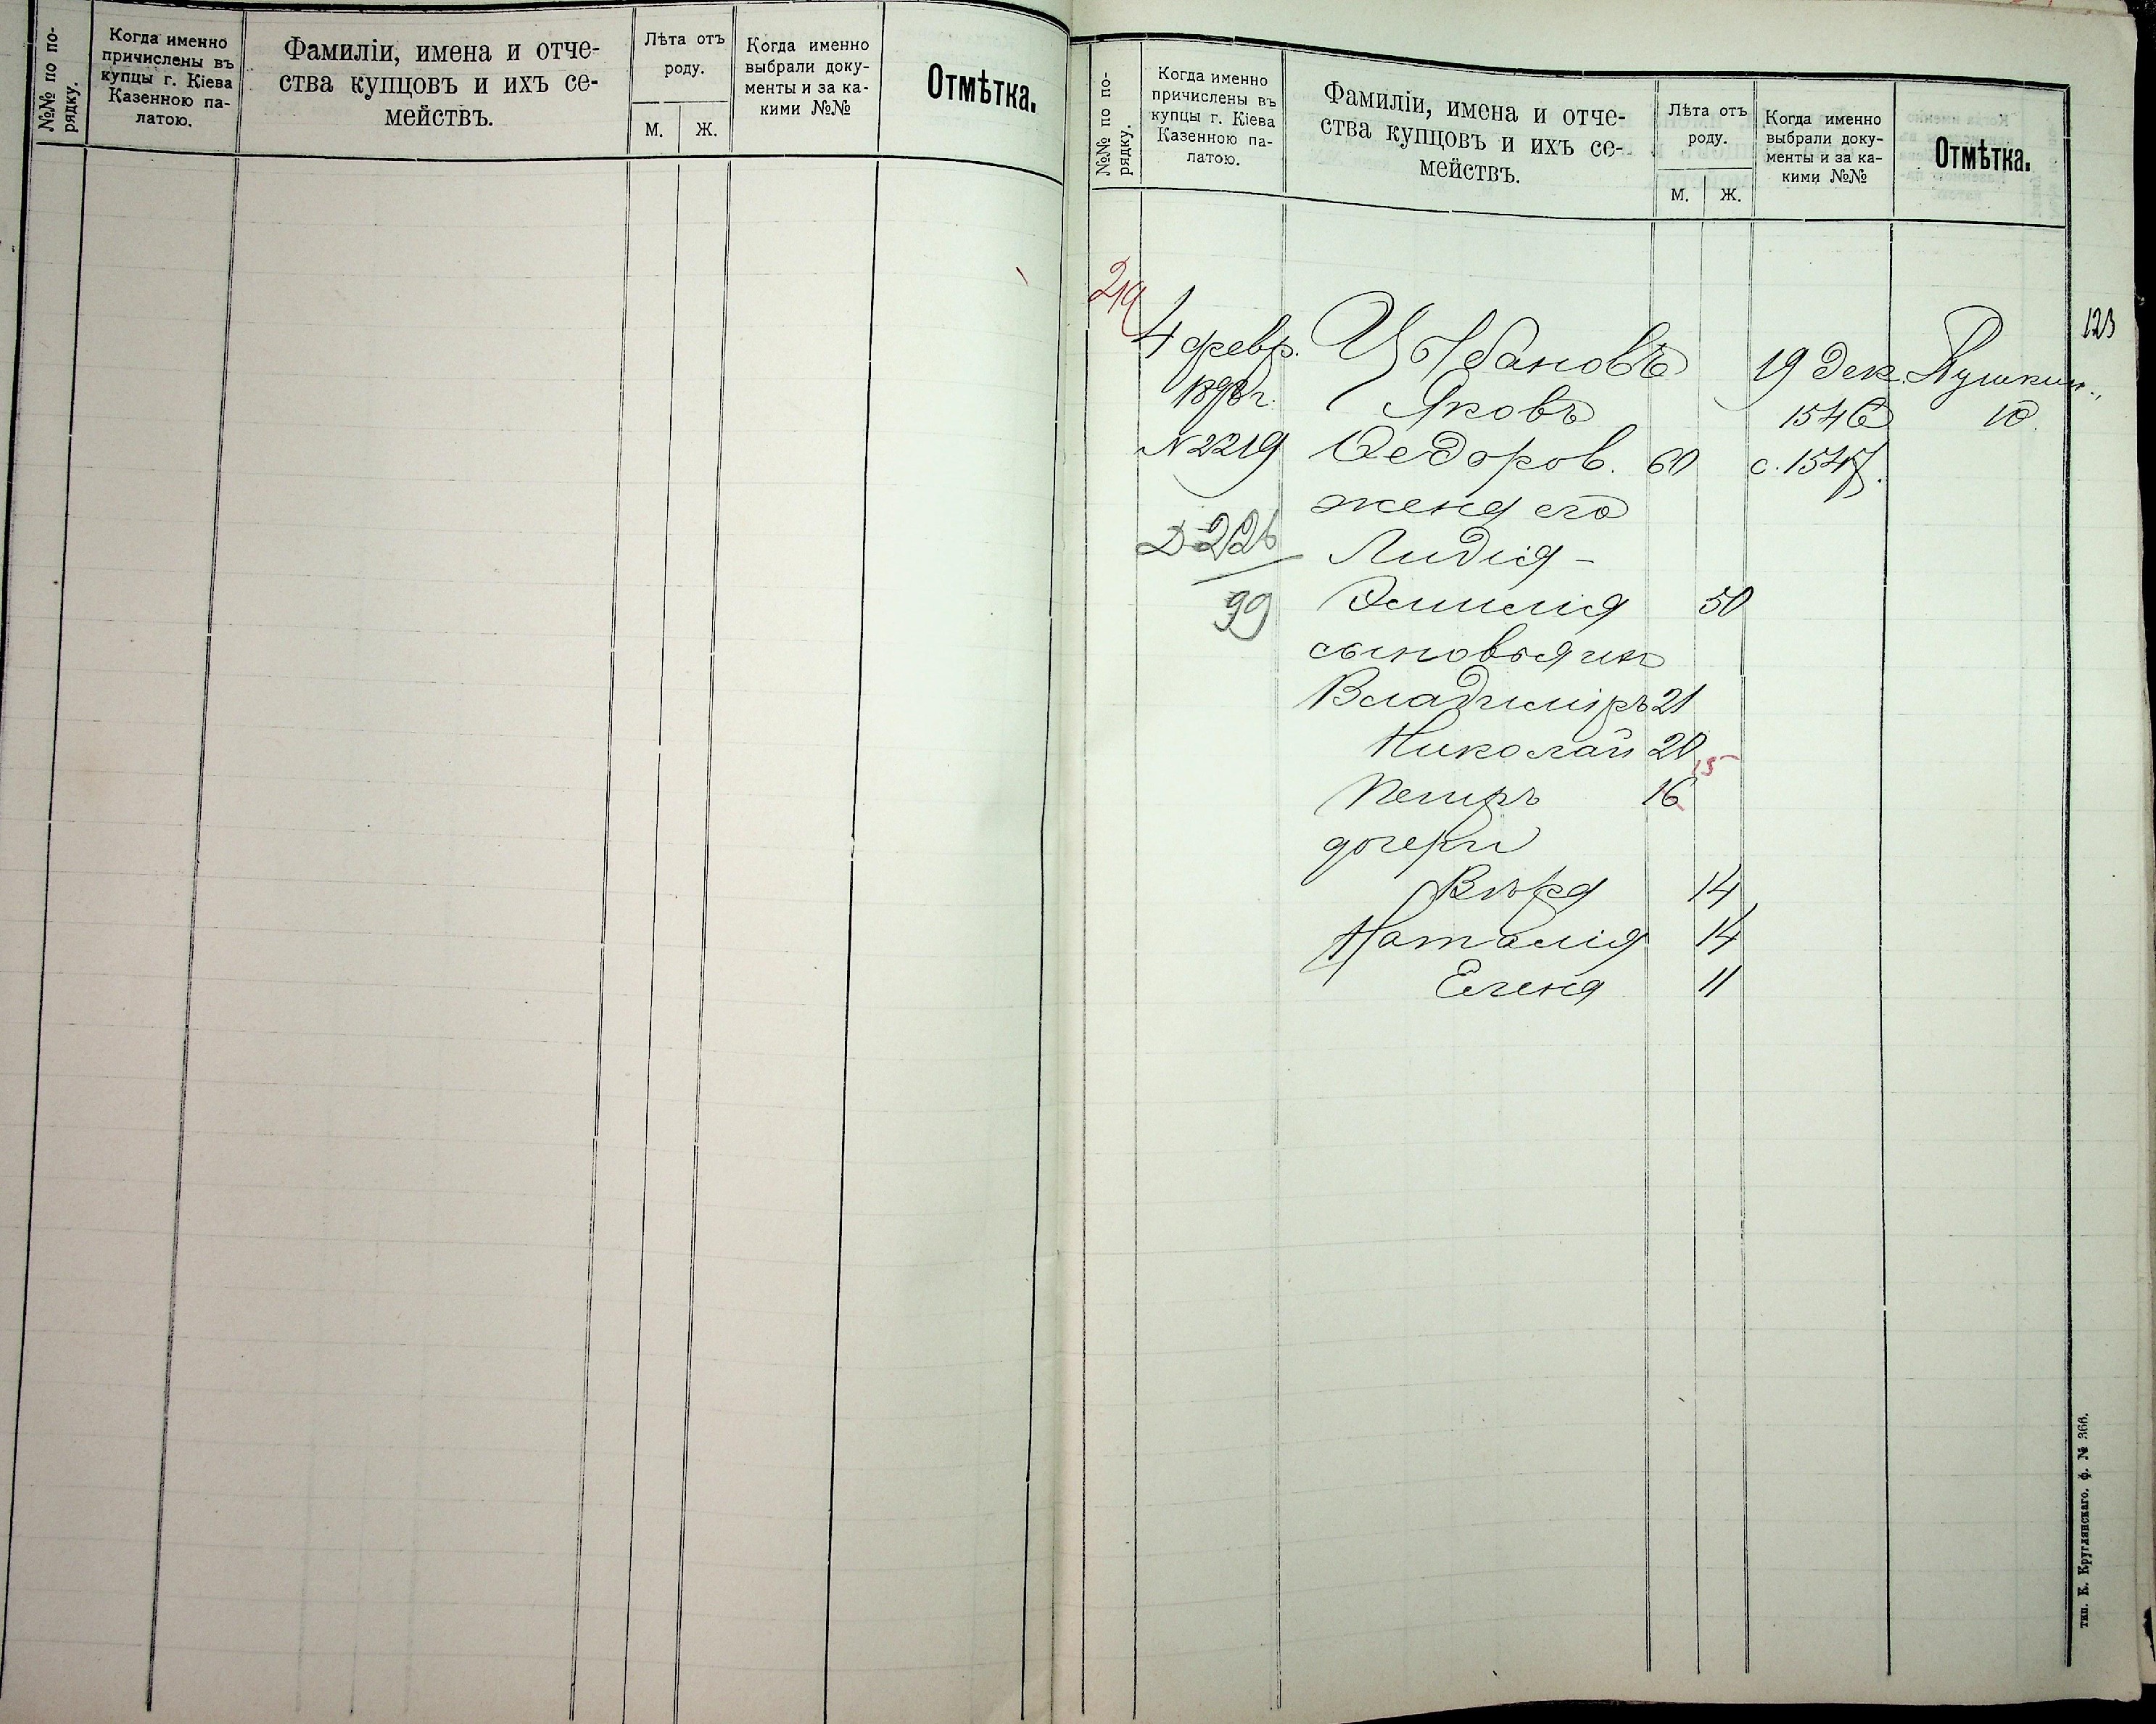 №№ по по-
рядку.
Когда именно
причислены въ
купцы г. Кіева
Казенною па-
латою.
Фамиліи, имена и отче-
ства купцовъ и ихъ се-
мействъ.
Лѣта отъ
роду.
М. Ж.
Когда именно
выбрали доку-
менты и за ка-
кими №№
Отмѣтка.
№№ по по-
рядку.
Когда именно
причислены въ
купцы г. Кіева
Казенною па-
латою.
Фамиліи, имена и отче-
ства купцовъ и ихъ се-
мействъ.
Лѣта отъ
роду.
М. Ж.
Когда именно
выбрали доку-
менты и за ка-
кими №№
Отмѣтка.
123
4 февр. 19 дек. Пушкин.,
Яковъ 1546 10.
N 2219 Федоров. 60 с. 1547.
жена его
Д 226
Лидія -
99
Эмилія 50
сыновья их
Владиміръ 21
Николай 20
15
Петръ 16
дочери
Вѣра 14
Наталія 14
Елена 11
тип. К. Круглянскаго. ф. № 366.